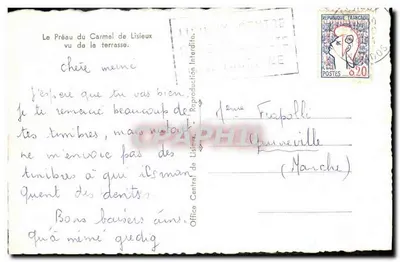 Le Préau du Carmel de Lisieux
vu de la terrasse.
chère mémé
J'espère que tu vas bien
je te remercie beaucoup de
tes timbres, mais
ne m'envoie pas des
timbres à qui il man
quent des dents.
Bons baisers ainsi
qu'à mémé
Office Central de Lisieux
Reproduction Interdite.
REPUBLIQUE FRANCAISE
POSTES 0,20
Mme Frapolli
Quineville
(Manche)